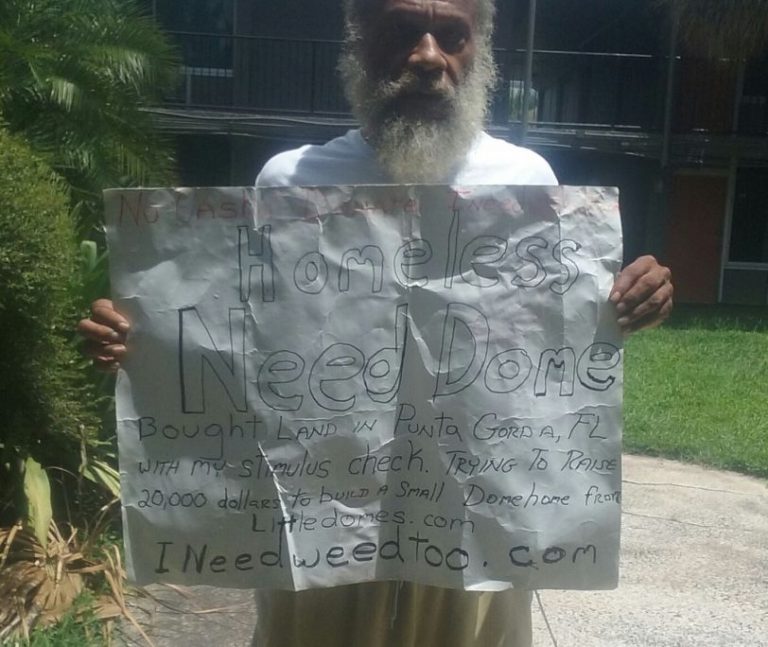 No Cash
Homeless
Need Dome
Bought LAND IN PUNTA GORDA, FL
WITH my stimulus check. TRYING TO RAISE
20,000 dollars to build A Small Domehome from
Littledomes.com
INeedweedtoo.com